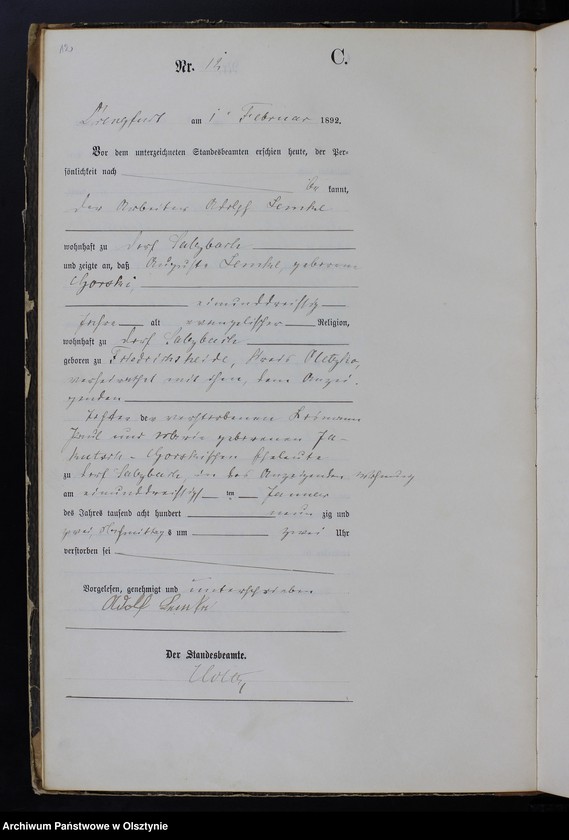 C.
Nr. 12
Drengfurt am 1. Februar 1892.
Vor dem unterzeichneten Standesbeamten erschien heute, der Per-
sönlichkeit nach
be kannt,
der Arbeiter Adolf Lemke
wohnhaft zu Dorf Salzbach
und zeigte an, daß Auguste Lemke, geborene
Gorski,
einunddreißig
Jahre alt evangelischer Religion,
wohnhaft zu Dorf Salzbach
geboren zu Friedrichsheide, Kreis Oletzko,
verheirathet mit ihm, dem Anzei-
genden
Tochter der verstorbenen
und Marie geborenen
Gorskischen Eheleute
zu Dorf Salzbach, in des Anzeigenden Wohnung
am einunddreißig ten Januar
des Jahres tausend acht hundert neun zig und
zwei, Nachmittag s um zwei Uhr
verstorben sei
Vorgelesen, genehmigt und unterschrieben
Adolf Lemke
Der Standesbeamte.
Archiwum Państwowe w Olsztynie